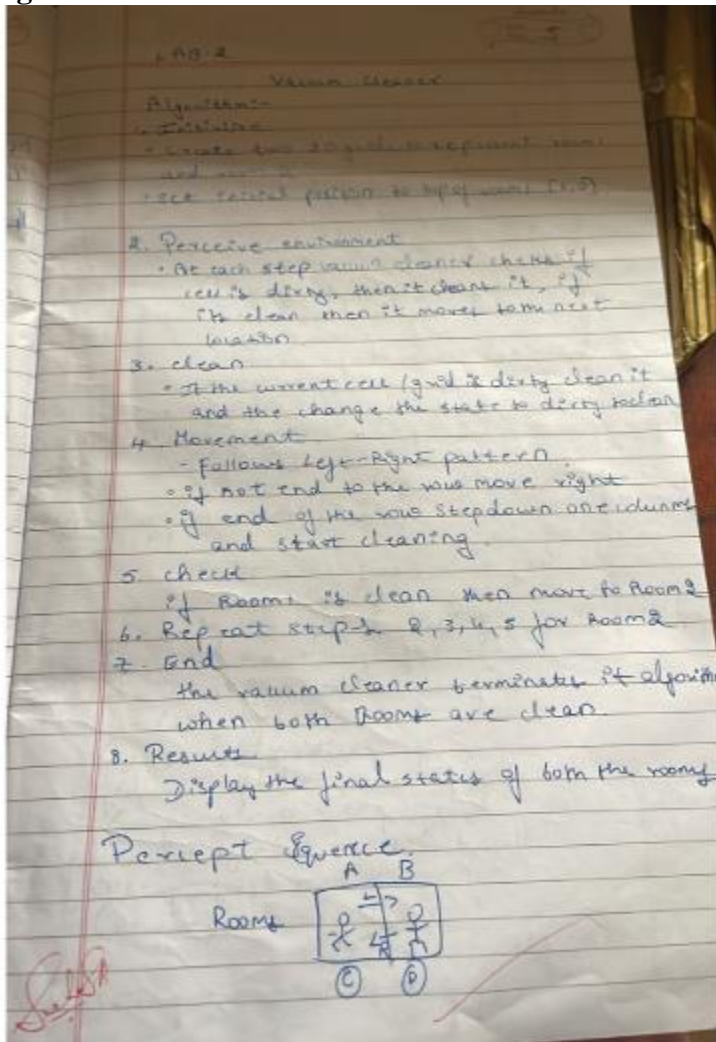 LAB-2
Vacuum Cleaner
Algorithm:-
1. Initialize
• Create two 2D grids to represent room1
and
• set initial position to top of room1 (0,0)
2. Perceive environment
• At each step vacuum cleaner checks if
cell is dirty, then it cleans it, if
its clean then it moves to the next
location
3. clean
• If the current cell/grid is dirty clean it
and the change the state to dirty to clean
4. Movement
- follows Left-Right pattern.
• if not end to the row move right
• if end of the row step down one column
and start cleaning.
5. check
if Room1 is clean then move to Room2
6. Repeat step-1 2,3,4,5 for Room2
7. End
the vacuum cleaner terminates it algorithm
when both Rooms are clean.
8. Results
Display the final status of both the rooms
Percept Squence.
A B
Rooms
C D